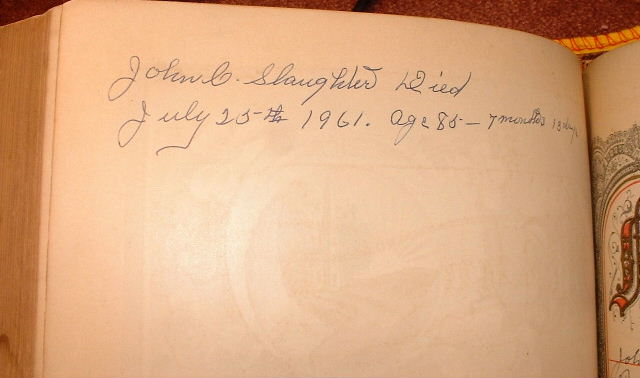 John C. Slaughter Died
July 25th 1961. age 85 - 7 months 13 days